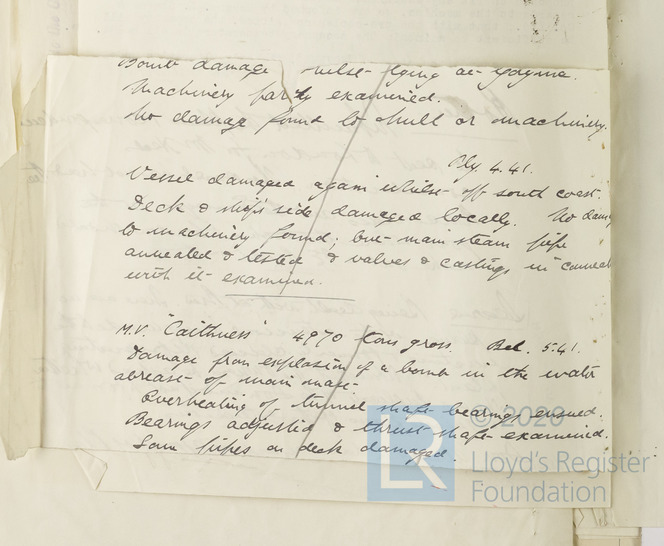 Bomb damage whilst lying at
Machinery partly examined.
No damage found to hull or machinery.
Bly 4.41.
Vessel damaged again whilst off south coast.
Deck & ship's side damaged locally. No dam
to machinery found; but main steam pipe
annealed & tested & valves & castings in connect
with it examined.
M.V. "Caithness" 4970 tons gross. Bel. 5.41.
Damage from explosion of a bomb in the water
abreast of main mast.
Overheating of tunnel shaft bearings ensued.
Bearings adjusted & thrust shaft examined.
Some pipes on deck damaged.
© 2020
LR
Lloyd's Register
Foundation